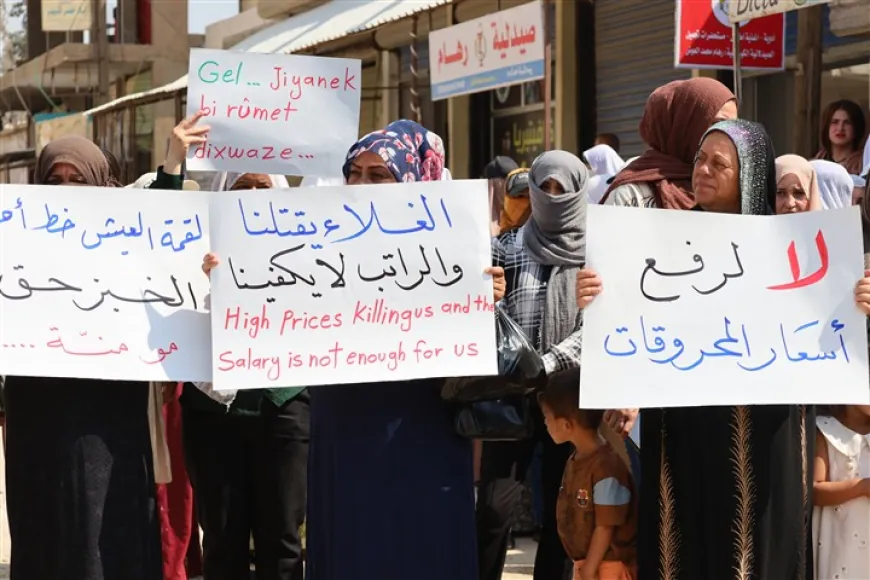 Gel... Jiyanek
bi rûmet
dixwaze...
لقمة العيش خط أح
الخبز حق
مو منّة .....
الغلاء يقتلنا
والراتب لا يكفينا
High Prices Killingus and the
Salary is not enough for us
لا لرفع
أسعار المحروقات
صيدلية رهام